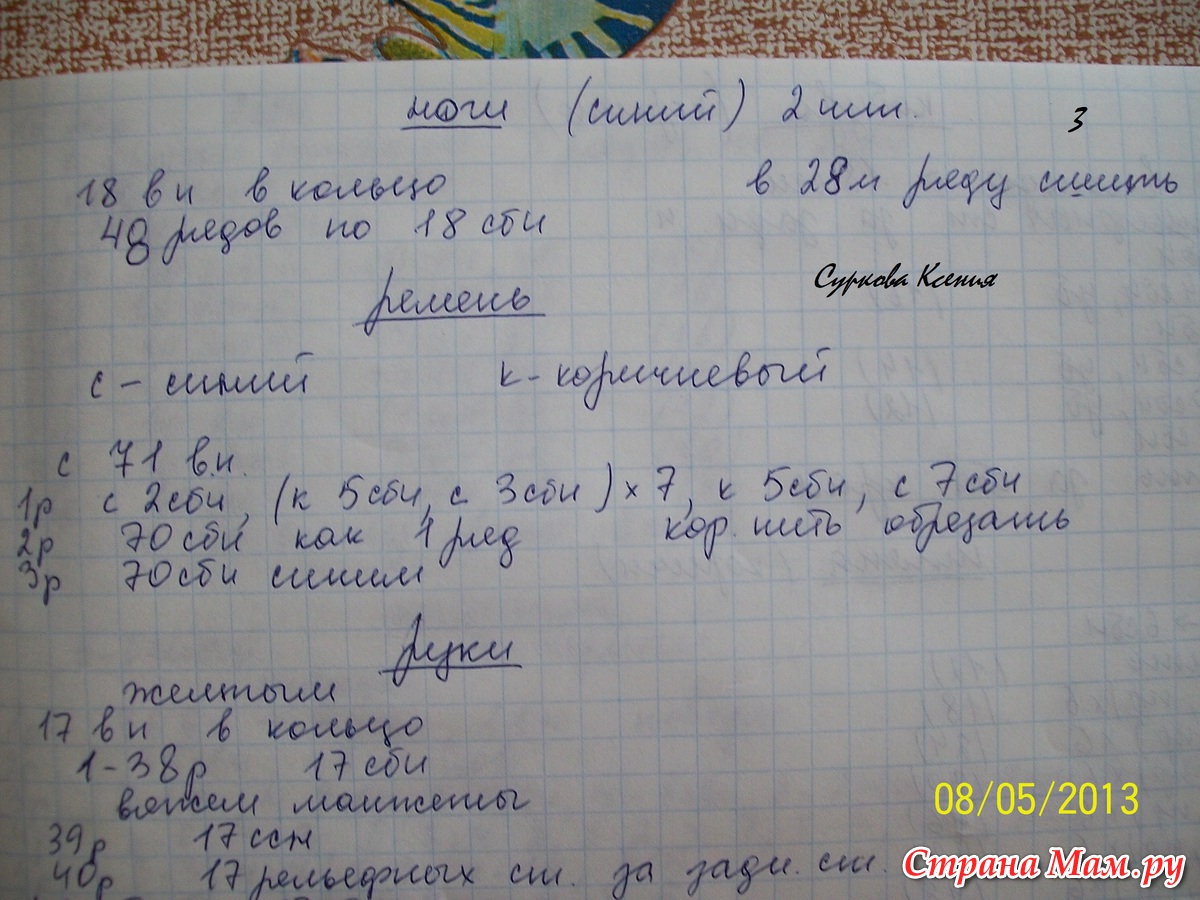 ноги (синий) 2 шт.
3
18 вп в кольцо
в 28м ряду сшить
48 рядов по 18 сбн
Суркова Ксения
ремень
с - синий к - коричневый
с 71 в.п.
1р с 2сбн, (к 5сбн, с 3сбн) × 7, к 5сбн, с 7сбн
2р 70сбн как 1 ряд кор. нить обрезать
3р 70сбн синим
руки
желтым
17 вп в кольцо
1-38р 17 сбн
вяжем манжеты
08/05/2013
39р 17 ссн
40р 17 рельефных ст. за задн. ст.
Страна Мам.ру